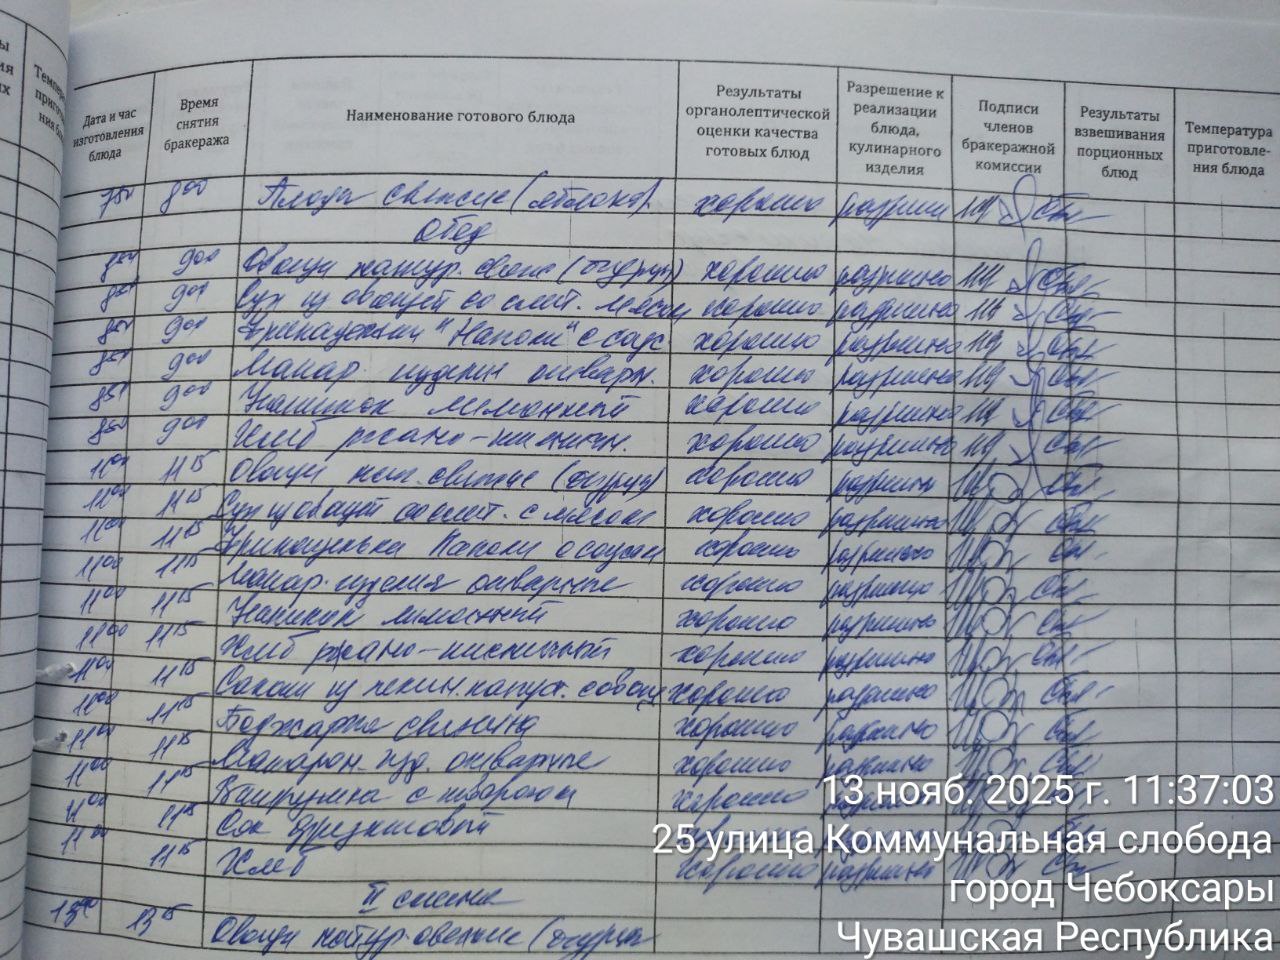 Дата и час изготовления блюда | Время снятия бракеража | Наименование готового блюда | Результаты органолептической оценки качества готовых блюд | Разрешение к реализации блюда, кулинарного изделия | Подписи членов бракеражной комиссии | Результаты взвешивания порционных блюд | Температура приготовле-ния блюда
7 50 8 00 Плоды свежие (яблоко) хорошо
Обед
9 00 Овощи натур. свеж (огурцы) хорошо разрешено
9 00 Суп из овощей со смет. мясом хорошо разрешено
9 00 "Наполи" с соус хорошо разрешено
9 00 Макар. изделия отварн. хорошо разрешено
9 00 Напиток лимонный хорошо разрешено
9 00 Хлеб ржано-пшеничн. хорошо разрешено
11 15 Овощи нат. свежие (огурцы) хорошо
11 00 11 15 Суп из овощей со смет. с мясом хорошо разрешено
11 00 11 15 Наполи с соусом хорошо разрешено
11 00 11 15 Макар. изделия отварные хорошо разрешено
11 00 11 15 Напиток лимонный хорошо разрешено
11 00 11 15 Хлеб ржано-пшеничный хорошо разрешено
11 00 11 15 Салат из пекин. капуст. с овощ хорошо разрешено
11 15 Поджарка свинина хорошо разрешено
11 00 11 15 Макарон. изд. отварные хорошо разрешено
11 00 11 15 Ватрушка с творогом
11 00 11 15 Сок фруктовый
11 00 11 15 Хлеб хорошо разрешено
II смена
13 00 13 15 Овощи натур. свежие (огурцы
13 нояб. 2025 г. 11:37:03
25 улица Коммунальная слобода
город Чебоксары
Чувашская Республика